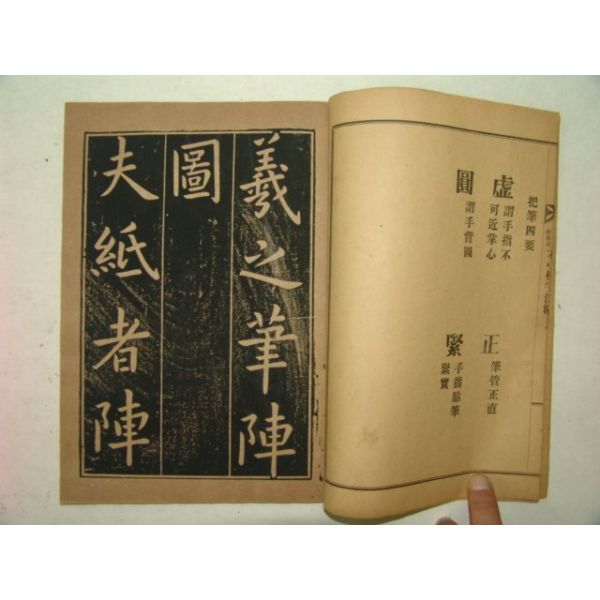 把筆四要
虛
謂手指不
可近掌心
正
筆管正直
圓
謂手背圓
緊
手指貼筆
緊實
羲之筆陣
圖
夫紙者陣